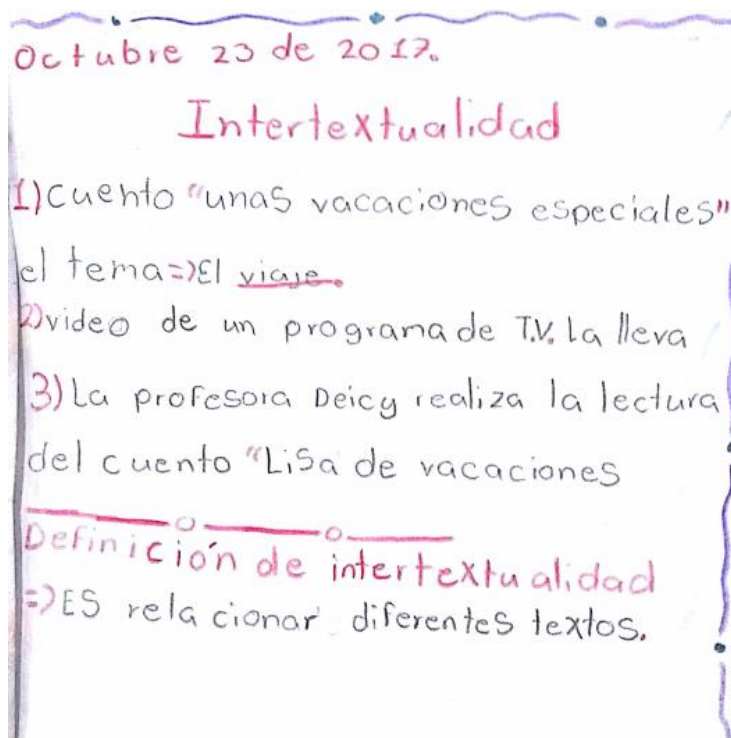 Octubre 23 de 2017.
Intertextualidad
1) Cuento "unas vacaciones especiales"
el tema => El viaje.
2) video de un programa de T.V. La lleva
3) La profesora Deicy realiza la lectura
del cuento "Lisa de vacaciones
Definición de intertextualidad
=> ES relacionar diferentes textos.